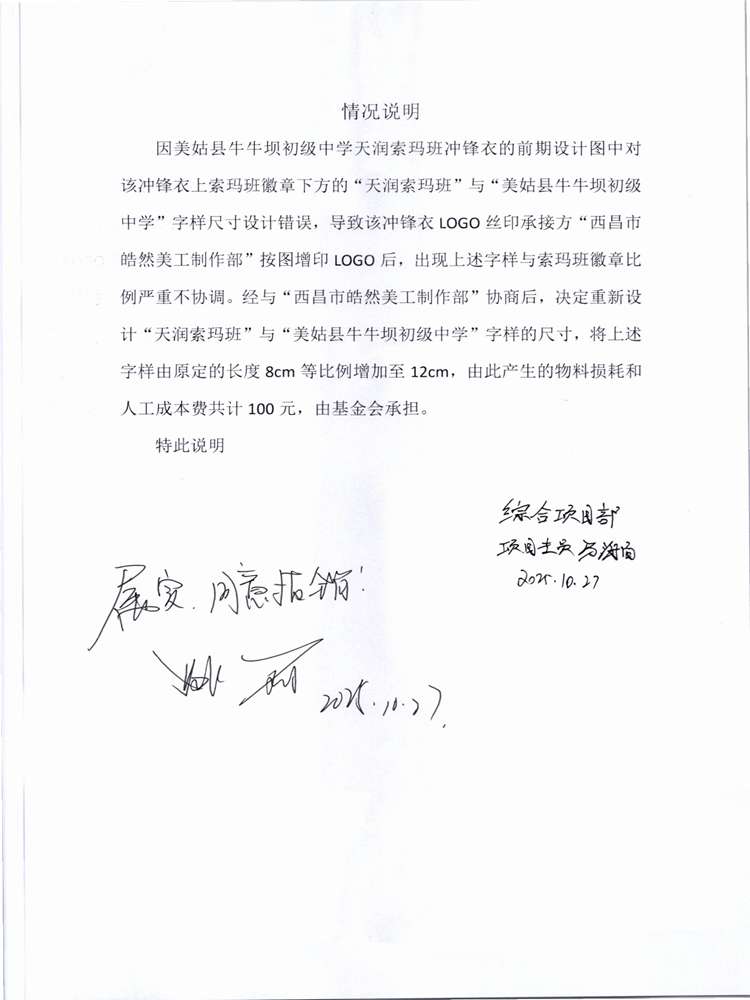 情况说明
因美姑县牛牛坝初级中学天润索玛班冲锋衣的前期设计图中对
该冲锋衣上索玛班徽章下方的“天润索玛班”与“美姑县牛牛坝初级
中学”字样尺寸设计错误，导致该冲锋衣 LOGO 丝印承接方“西昌市
皓然美工制作部”按图增印 LOGO 后，出现上述字样与索玛班徽章比
例严重不协调。经与“西昌市皓然美工制作部”协商后，决定重新设
计“天润索玛班”与“美姑县牛牛坝初级中学”字样的尺寸，将上述
字样由原定的长度 8cm 等比例增加至 12cm，由此产生的物料损耗和
人工成本费共计 100 元，由基金会承担。
特此说明
综合项目部
项目专员
2025.10.27
属实、同意报销！
2025.10.27.